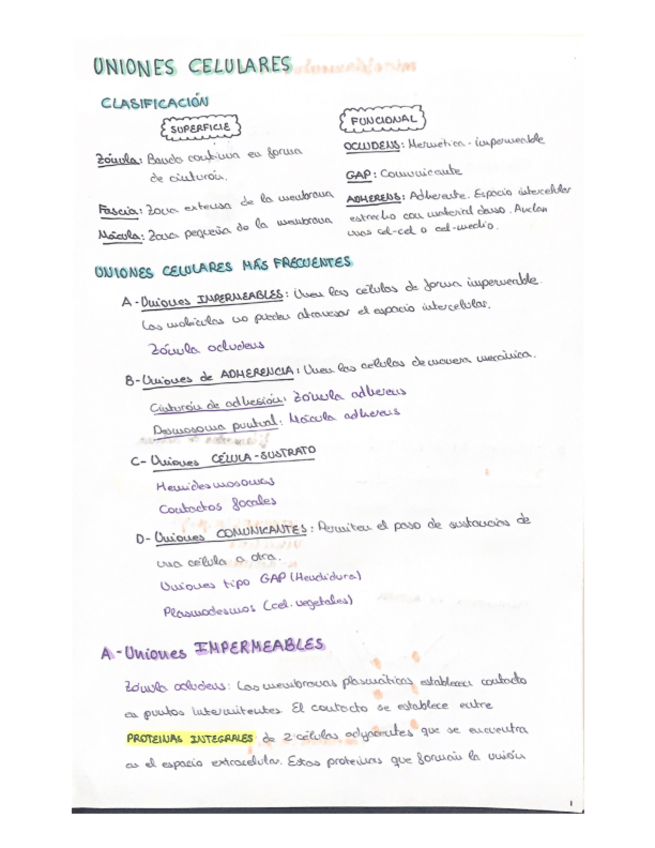 UNIONES CELULARES
CLASIFICACIÓN
SUPERFICIE
Zónula: Banda continua en forma
de cinturón.
Fascia: Zona extensa de la membrana
Mácula: Zona pequeña de la membrana
FUNCIONAL
OCLUDENS: Hermética - impermeable
GAP: Comunicante
ADHERENS: Adherente. Espacio intercelular
estrecho con material denso. Anclan
unas cel-cel o cel-medio.
UNIONES CELULARES MÁS FRECUENTES
A - Uniones IMPERMEABLES: Unen las células de forma impermeable.
Las moléculas no pueden atravesar el espacio intercelular.
Zónula ocludens
B- Uniones de ADHERENCIA: Unen las células de manera mecánica.
Cinturón de adhesión: Zónula adherens
Desmosoma puntual: Mácula adherens
C- Uniones CÉLULA - SUSTRATO
Hemidesmosomas
Contactos focales
D- Uniones COMUNICANTES: Permiten el paso de sustancias de
una célula a otra.
Uniones tipo GAP (Hendidura)
Plasmodesmos (cel. vegetales)
A - Uniones IMPERMEABLES
Zónula ocludens: Las membranas plasmáticas establecen contacto
en puntos intermitentes. El contacto se establece entre
PROTEINAS INTEGRALES de 2 células adyacentes que se encuentra
en el espacio extracelular. Estas proteinas que forman la unión
1